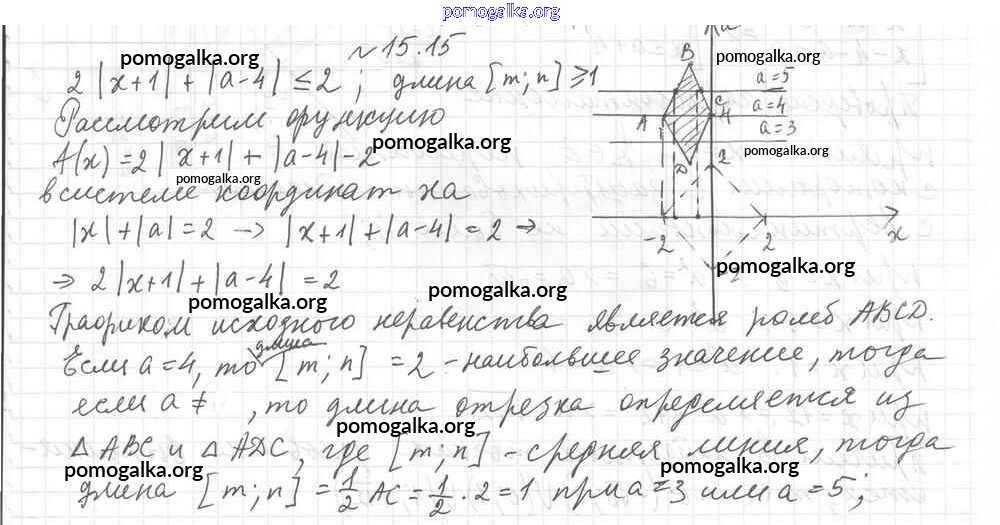 pomogalka.org
№15.15
pomogalka.org
2|x+1| + |a-4| ≤ 2; длина [m; n] ≥ 1
pomogalka.org
Рассмотрим функцию
pomogalka.org
A(x) = 2|x+1| + |a-4| - 2
pomogalka.org
в системе координат xa
|x| + |a| = 2 → |x+1| + |a-4| = 2 ⇒
⇒ 2|x+1| + |a-4| = 2
pomogalka.org
pomogalka.org
B
a=5
pomogalka.org
A
C
H
a=4
a=3
pomogalka.org
D
2
-2
2
x
pomogalka.org
Графиком исходного неравенства является ромб ABCD.
Если a=4, то длина [m; n] = 2 - наибольшее значение, тогда
если a ≠ , то длина отрезка определяется из
pomogalka.org
△ABC и △ADC, где [m; n] - средняя линия, тогда
pomogalka.org
pomogalka.org
длина [m; n] = 1/2 AC = 1/2 · 2 = 1 при a=3 или a=5;